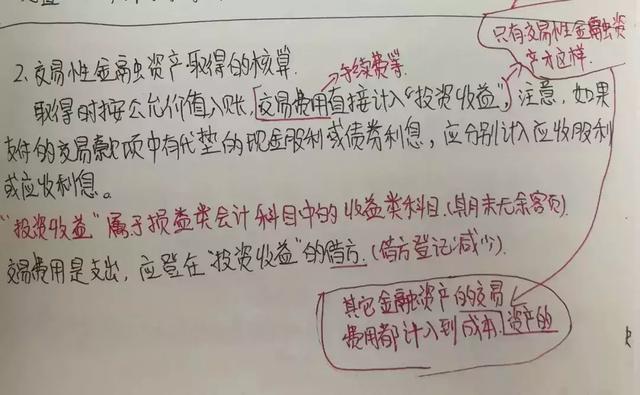 只有交易性金融资
产才这样.
2、交易性金融资产取得的核算.
手续费等
取得时按公允价值入账，交易费用直接计入“投资收益”，注意，如果
支付的交易款项中有代垫的现金股利或债券利息，应分别计入应收股利
或应收利息。
“投资收益”属于损益类会计科目中的收益类科目.(期月末无余额).
交易费用是支出，应登在“投资收益”的借方.(借方登记减少).
其它金融资产的交易
费用都计入到成本.资产的